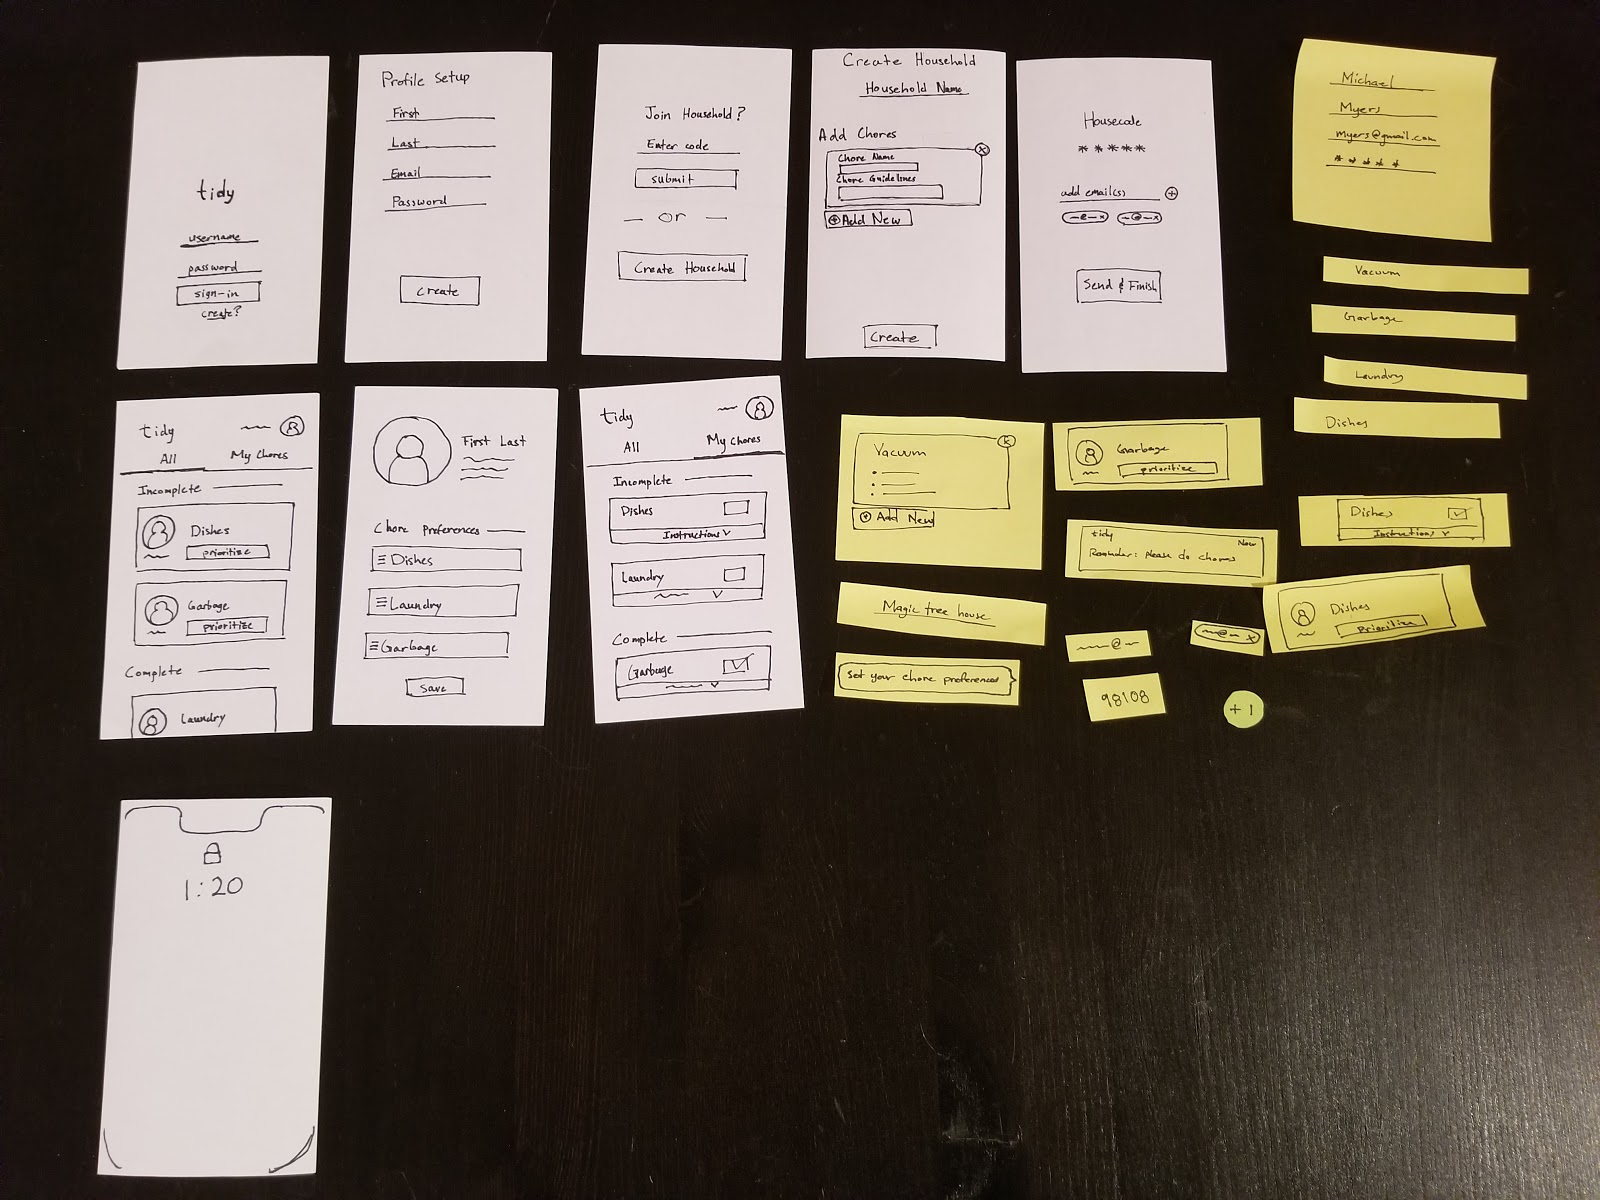 tidy
username
password
sign-in
create?
Profile Setup
First
Last
Email
Password
create
Join Household?
Enter code
submit
— or —
Create Household
Create Household
Household Name
Add Chores
Chore Name
Chore Guidelines
Add New
Create
Housecode
*****
add email(s)
Send & Finish
Michael
Myers
myers@gmail.com
*****
Vacuum
Garbage
Laundry
Dishes
tidy
All My Chores
Incomplete
Dishes
prioritize
Garbage
prioritize
Complete
Laundry
First Last
Chore Preferences
Dishes
Laundry
Garbage
save
tidy
All My Chores
Incomplete
Dishes
Instructions
Laundry
Complete
Garbage
Vacuum
Add New
Garbage
prioritize
tidy Now
Reminder: Please do chores
Dishes
Instructions
Magic tree house
Set your chore preferences
@
98108
@ x
+1
Dishes
Prioritize
1:20